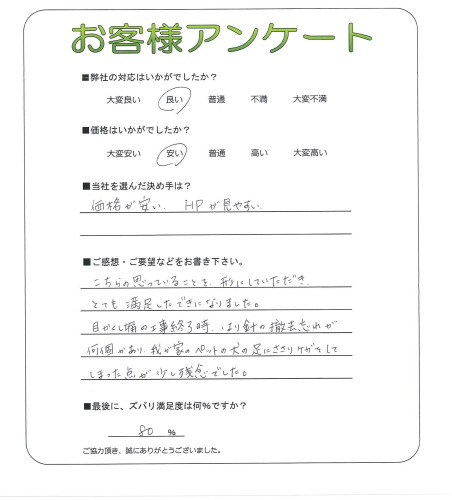 お客様アンケート
■弊社の対応はいかがでしたか？
大変良い 良い 普通 不満 大変不満
■価格はいかがでしたか？
大変安い 安い 普通 高い 大変高い
■当社を選んだ決め手は？
価格が安い。 HPが見やすい。
■ご感想・ご要望などをお書き下さい。
こちらの思っていることを、形にしていただき、
とても満足したできになりました。
目かくし塀の工事終了時、はり針の撤去忘れが
何個があり、我が家のペットの犬の足にささりケガをして
しまった点が少し残念でした。
■最後に、ズバリ満足度は何%ですか？
80 %
ご協力頂き、誠にありがとうございました。